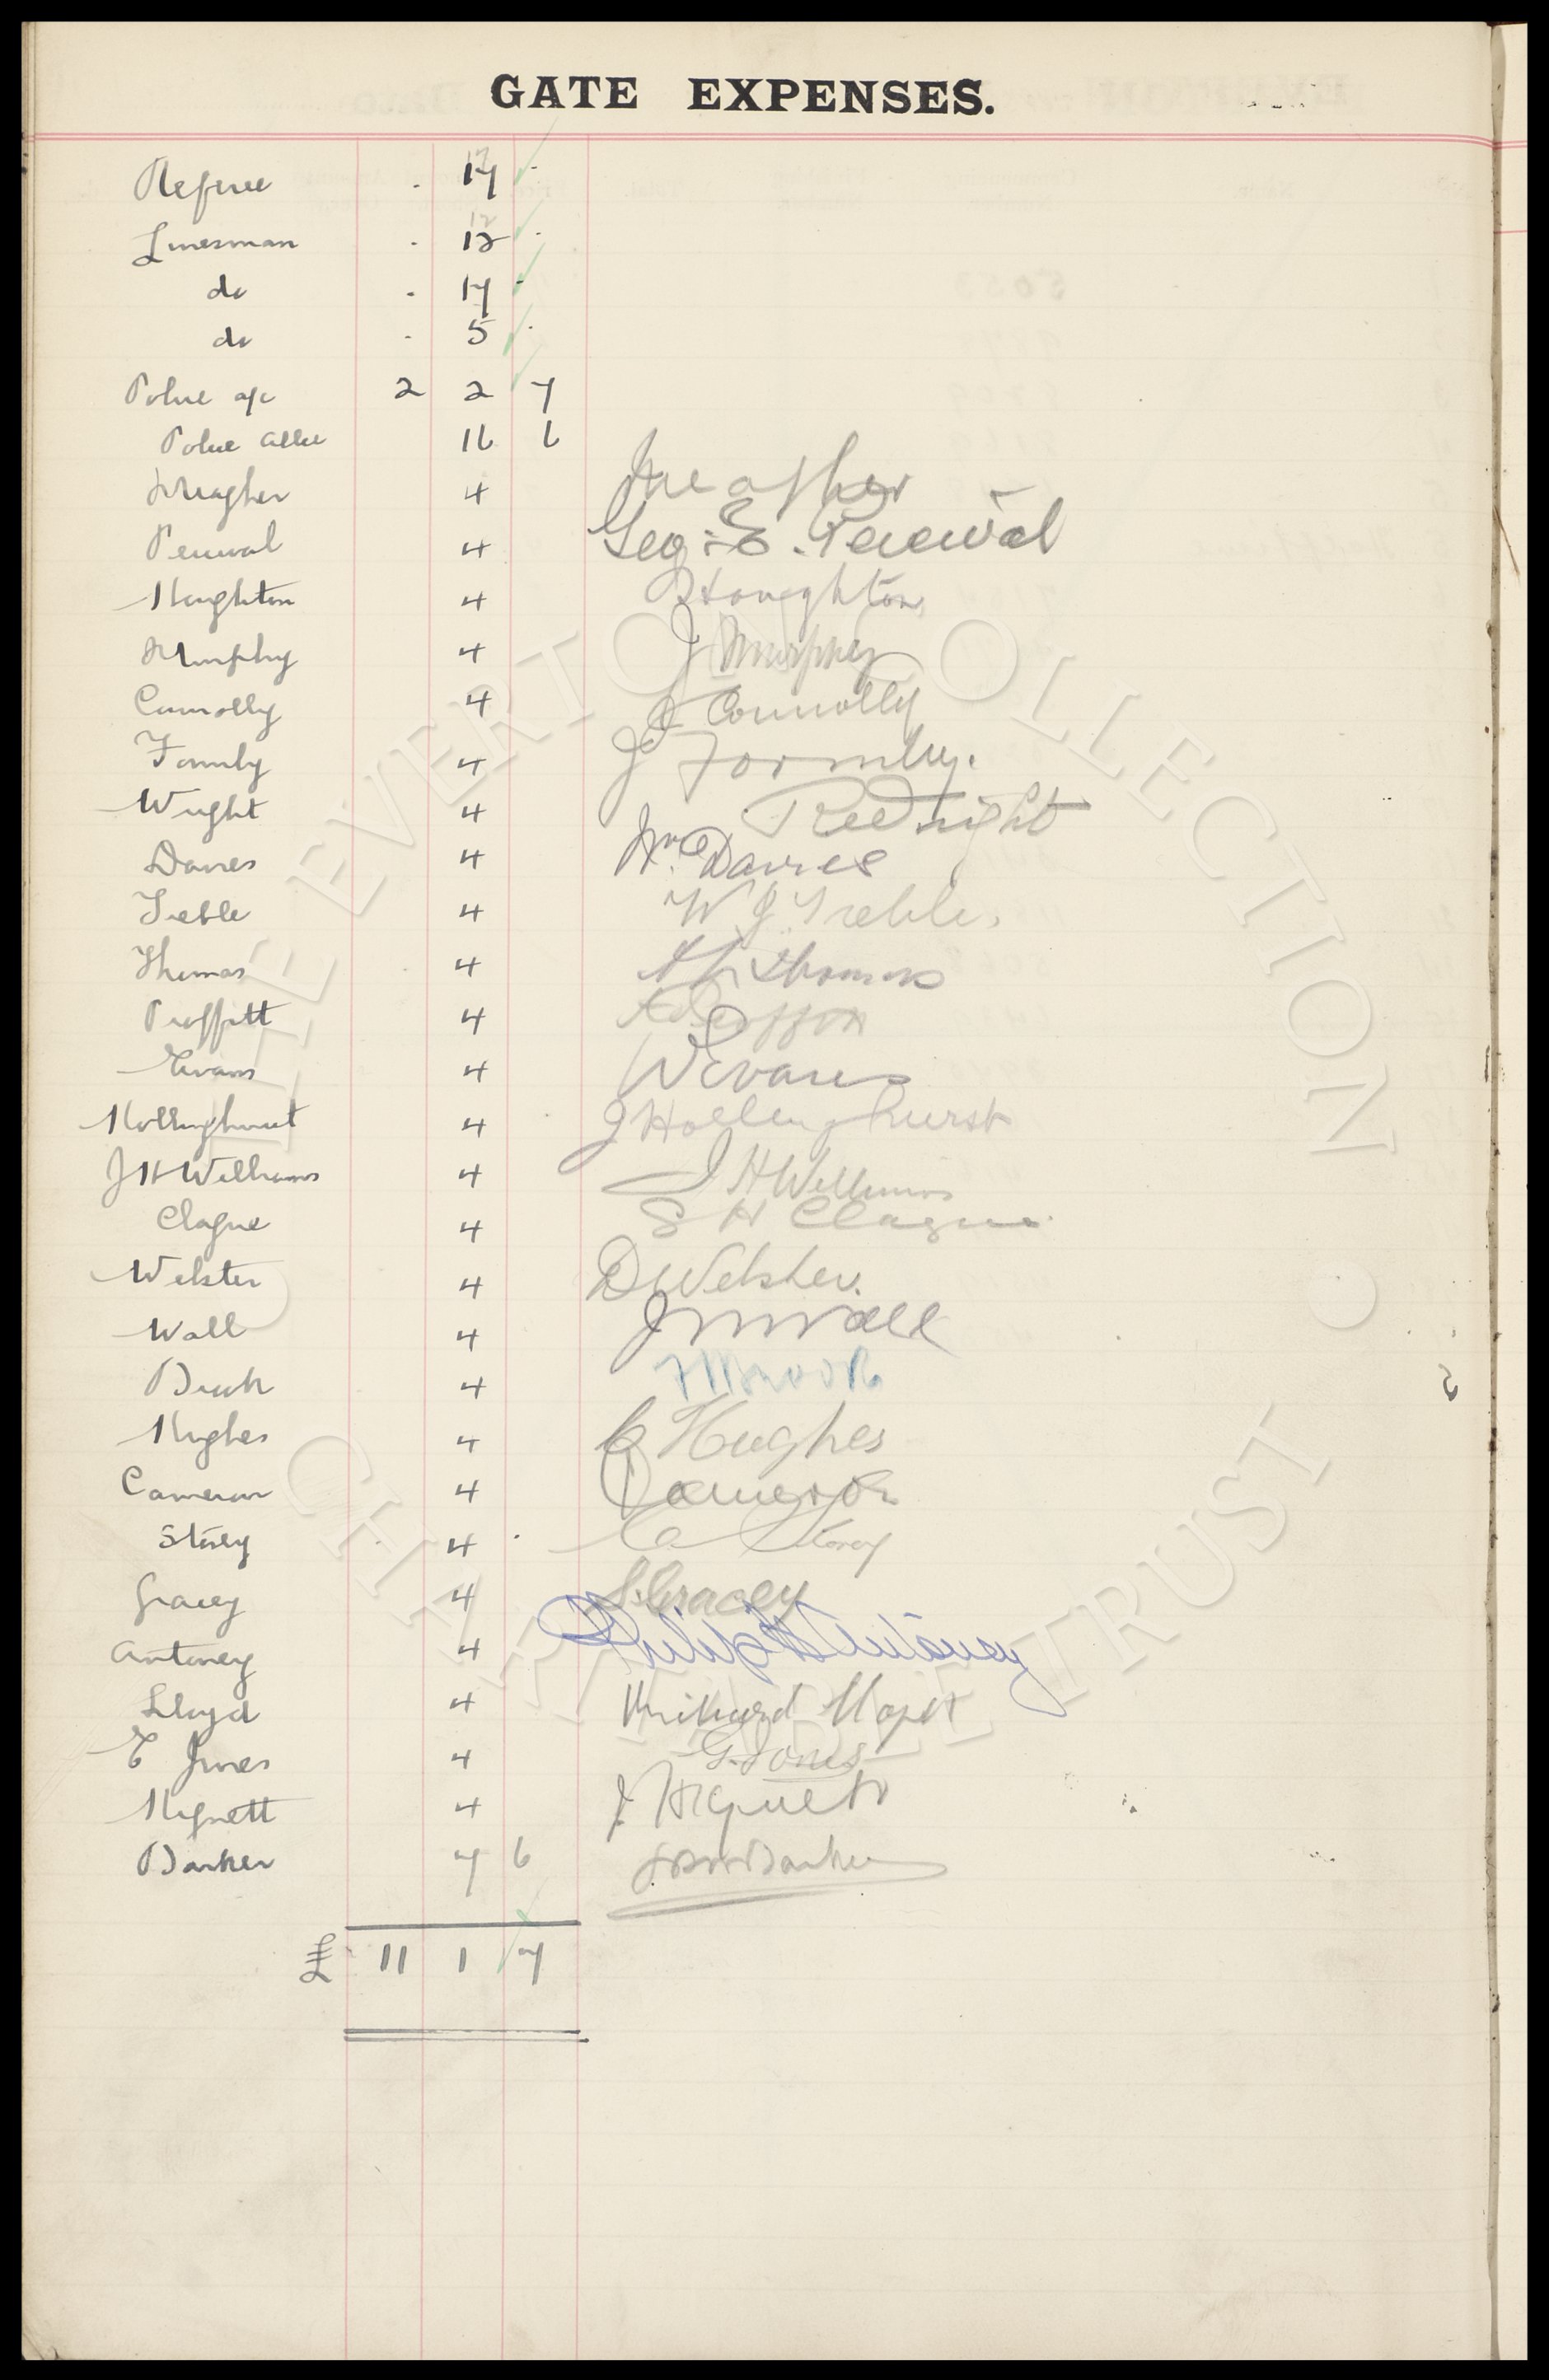 GATE EXPENSES.
Referee . 17 .
Linesman . 12 .
do . 17 -
do . 5 .
Police a/c 2 2 7
Police allce 16 6
Meagher 4 Meagher
Percival 4 Geo. E. Percival
Houghton 4 Houghton
Murphy 4 J Murphy
Connolly 4 J Connolly
Formby 4 J Formby.
Wright 4 Wright
Davies 4 Wm Davies
Treble 4 W J Treble.
Thomas 4 Thomas
Proffitt 4
Evans 4 W Evans
Hollinghurst 4 J Hollinghurst
J H Williams 4 J H Williams
Clague 4 S H Clague
Webster 4 D Webster.
Wall 4 J M Wall
Brook 4 F Brook
Hughes 4 C Hughes
Cameron 4 Cameron
Storey 4 . C Storey
Gracey 4 S. Gracey
Antoney 4 Philip Antoney
Lloyd 4 Richard Lloyd
E Jones 4 E. Jones
Hignett 4 J Hignett
Barker 7 6 Barker
£ 11 1 7
THE EVERTON COLLECTION CHARITABLE TRUST